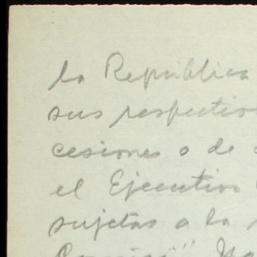 la República
sus respectiv
cesiones o de
el Ejecutivo
sujetas a la